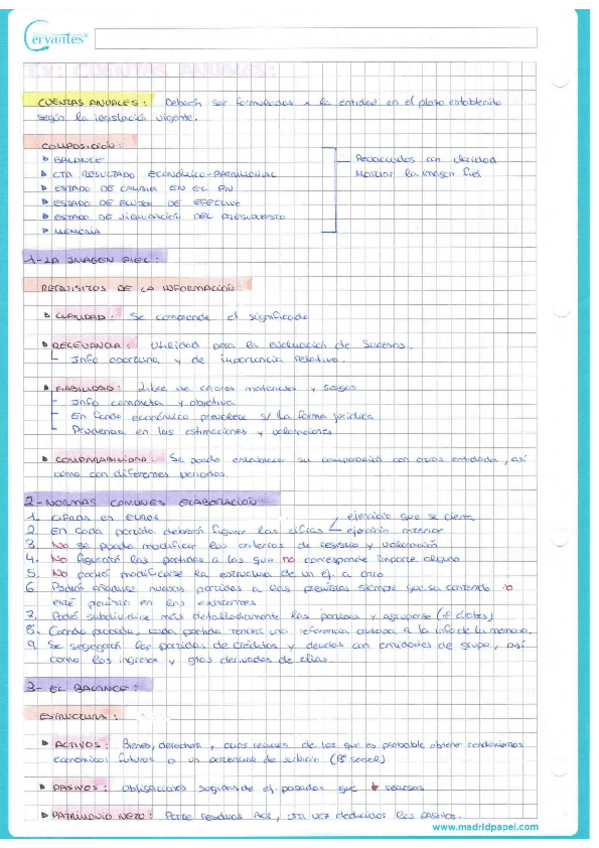 Cervantes®
CUENTAS ANUALES:
CUENTAS ANUALES: Deberán ser formuladas x la entidad en el plazo establecido
según la legislación vigente.
COMPOSICIÓN:
BALANCE
Redactados con claridad
CTA RESULTADO ECONÓMICO-PATRIMONIAL
Mostrar la imagen fiel
ESTADO DE CAMBIO EN EL PN
ESTADO DE FLUJOS DE EFECTIVO
ESTADO DE LIQUIDACIÓN DEL PRESUPUESTO
MEMORIA
1-LA IMAGEN FIEL:
REQUISITOS DE LA INFORMACIÓN:
CLARIDAD: Se comprende el significado
RELEVANCIA: Utilidad para la evaluación de sucesos.
Info oportuna y de importancia relativa.
FIABILIDAD: Libre de errores materiales y sesgos
Info completa y objetiva
En fondo económico prevalece s/ la forma jurídica
Prudencia en las estimaciones y valoraciones
COMPARABILIDAD: Se pueda establecer su comparación con otras entidades, así
como con diferentes periodos.
2-NORMAS COMUNES ELABORACIÓN:
1. CIFRAS EN EUROS
ejercicio que se cierra
2. En cada partida deberán figurar las cifras
ejercicio anterior
3. No se puede modificar los criterios de registro y valoración
4. No figurarán las partidas a las que no corresponde importe alguno
5. No podrá modificarse la estructura de un ej. a otro
6 Podrán añadirse nuevas partidas a las previstas siempre que su contenido no
esté previsto en las existentes
7. Podrá subdividirse más detalladamente las partidas y agruparse
8. Cuando proceda, cada partida tendrá una referencia cruzada a la info de la memoria.
9. Se segregarán las partidas de créditos y deudas con entidades de grupo, así
como los ingresos y gtos derivados de ellas.
3- EL BALANCE:
ESTRUCTURA:
ACTIVOS: Bienes, derechos y otros recursos de los que es probable obtener rendimientos
económicos futuros o un potencial de servicio
PASIVOS: Obligaciones surgidas de ej. pasados que recursos
PATRIMONIO NETO: Parte residual Act, una vez deducidos los pasivos.
www.madridpapel.com